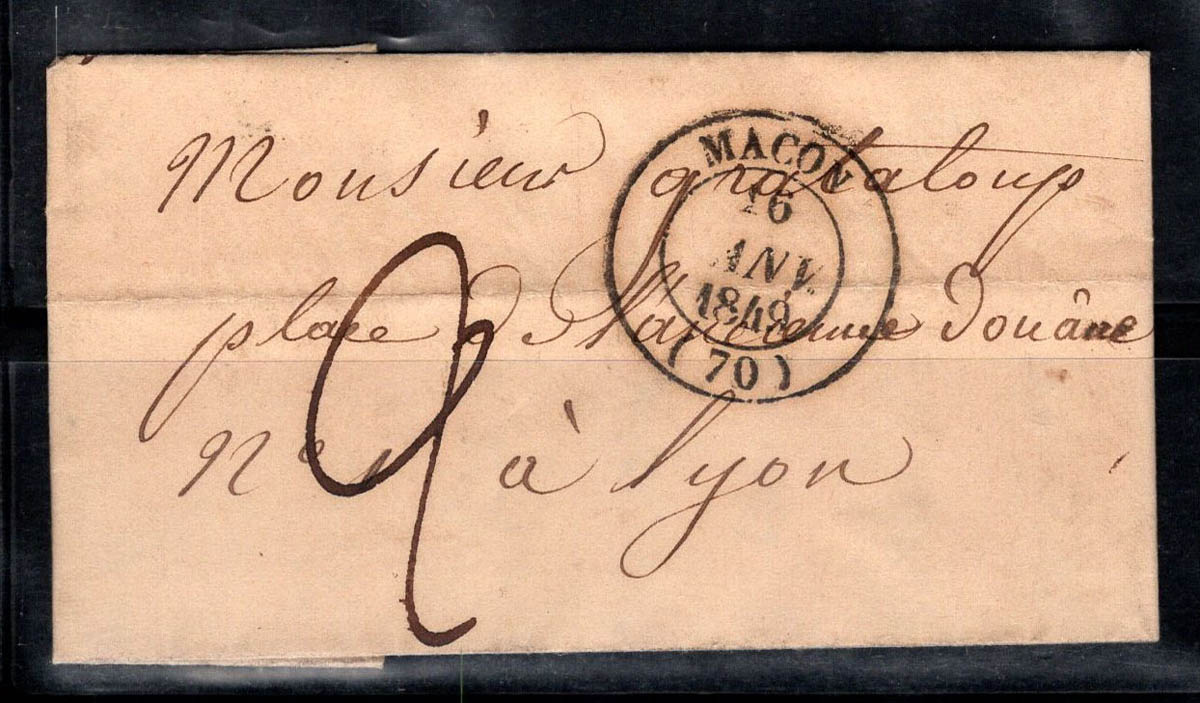 Monsieur grataloup
place de l'ancienne Douâne
n° à Lyon
2
MACON
16
JANV.
1849
(70)